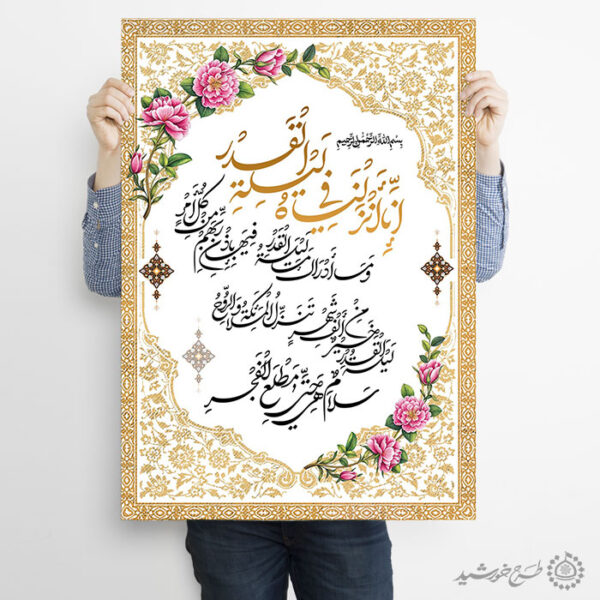 بِسْمِ اللهِ الرَّحْمٰنِ الرَّحِيمِ
إِنَّا أَنْزَلْنَاهُ فِي لَيْلَةِ الْقَدْرِ
وَمَا أَدْرَاكَ مَا لَيْلَةُ الْقَدْرِ
لَيْلَةُ الْقَدْرِ خَيْرٌ مِنْ أَلْفِ شَهْرٍ
تَنَزَّلُ الْمَلَائِكَةُ وَالرُّوحُ
فِيهَا بِإِذْنِ رَبِّهِمْ مِنْ كُلِّ أَمْرٍ
سَلَامٌ هِيَ حَتَّى مَطْلَعِ الْفَجْرِ
طرح خورشید